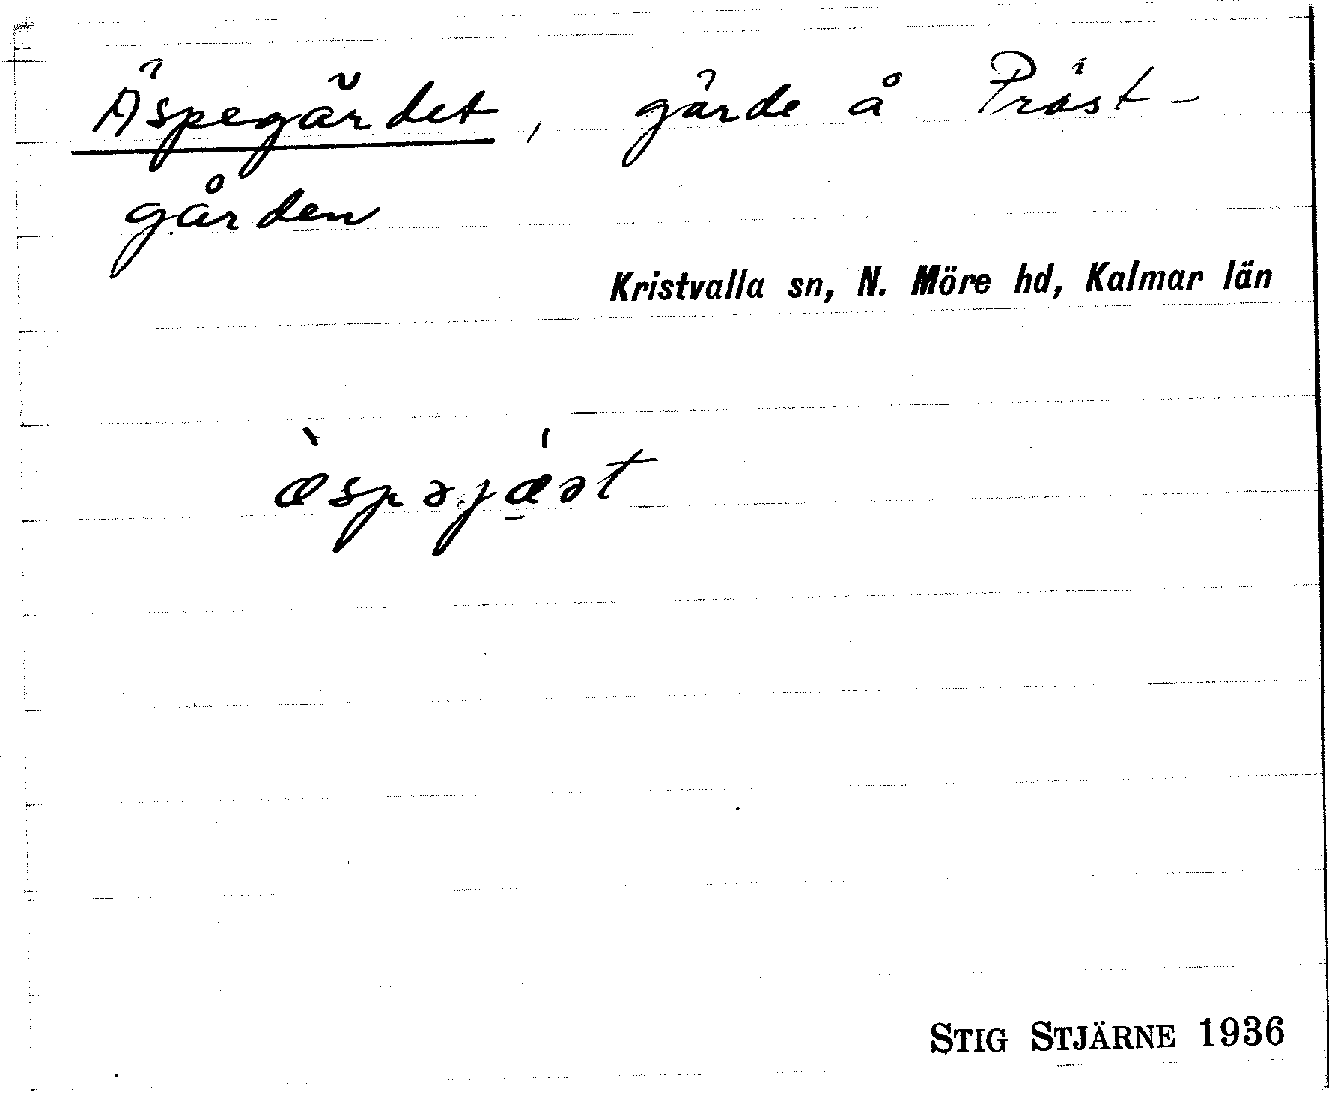 Äspegärdet, gärde å Präst-
gården
Kristvalla sn, N. Möre hd, Kalmar län
æ̀spəjǽ̲ət
STIG STJÄRNE 1936